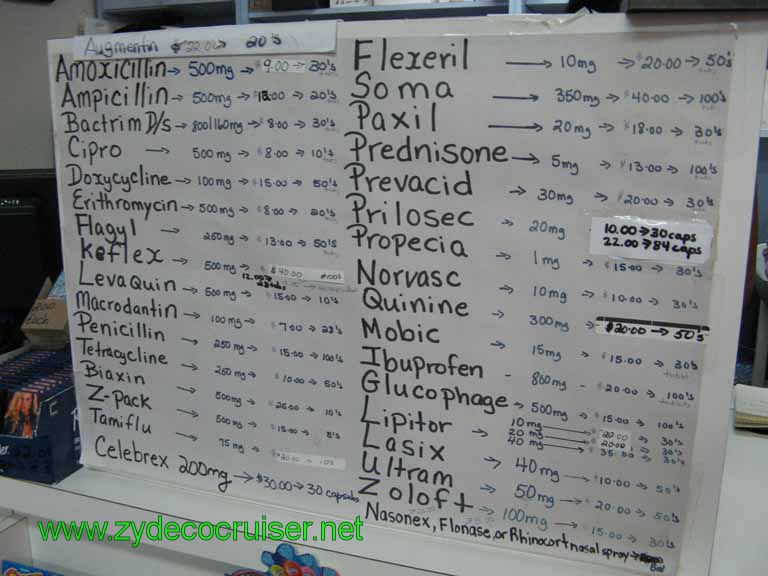 Augmentin $22.00 → 20's
Amoxicillin → 500mg → $9.00 → 30's
Ampicillin → 500mg → 18.00 → 20's
Bactrim D/s → 800/160mg → $8.00 → 30's
Cipro → 500mg → $8.00 → 10's
Doxycycline → 100mg → $15.00 → 50's
Erithromycin → 500mg → $8.00 → 20's
Flagyl → 250mg → $13.00 → 50's
Keflex → 500mg → $40.00 100's
12.00 →
Levaquin → 500mg → $15.00 → 10's
Macrodantin → 100mg → $7.00 → 28's
Penicillin → 250mg → $15.00 → 100's
Tetracycline → 250mg → $10.00 → 50's
Biaxin → 500mg → $25.00 → 10's
Z-Pack → 500mg → $15.00 → 3's
Tamiflu → 75mg → $20.00 → 10's
Celebrex 200mg → $30.00 → 30 capsules
Flexeril → 10mg → $20.00 → 50's
Soma 350mg → $40.00 → 100's
Paxil → 20mg → $18.00 → 30's
Prednisone → 5mg → $13.00 → 100's
Prevacid → 30mg → $20.00 → 30's
Prilosec → 20mg 10.00 → 30 caps
22.00 → 84 caps
Propecia → 1mg → $15.00 → 30's
Norvasc → 10mg → $10.00 → 30's
Quinine → 300mg → $20.00 → 50's
Mobic → 15mg → $15.00 → 30's
Ibuprofen - 800mg - $20.00 → 100's
Glucophage → 500mg → $15.00 → 100's
Lipitor → 10mg → $20.00 → 30's
20mg → $20.00 → 30's
40mg → $35.00 → 30's
Lasix → 40mg → $10.00 → 50's
Ultram → 50mg → $20.00 → 50's
Zoloft → 100mg → $15.00 → 30's
Nasonex, Flonase, or Rhinocort nasal spray →
www.zydecocruiser.net